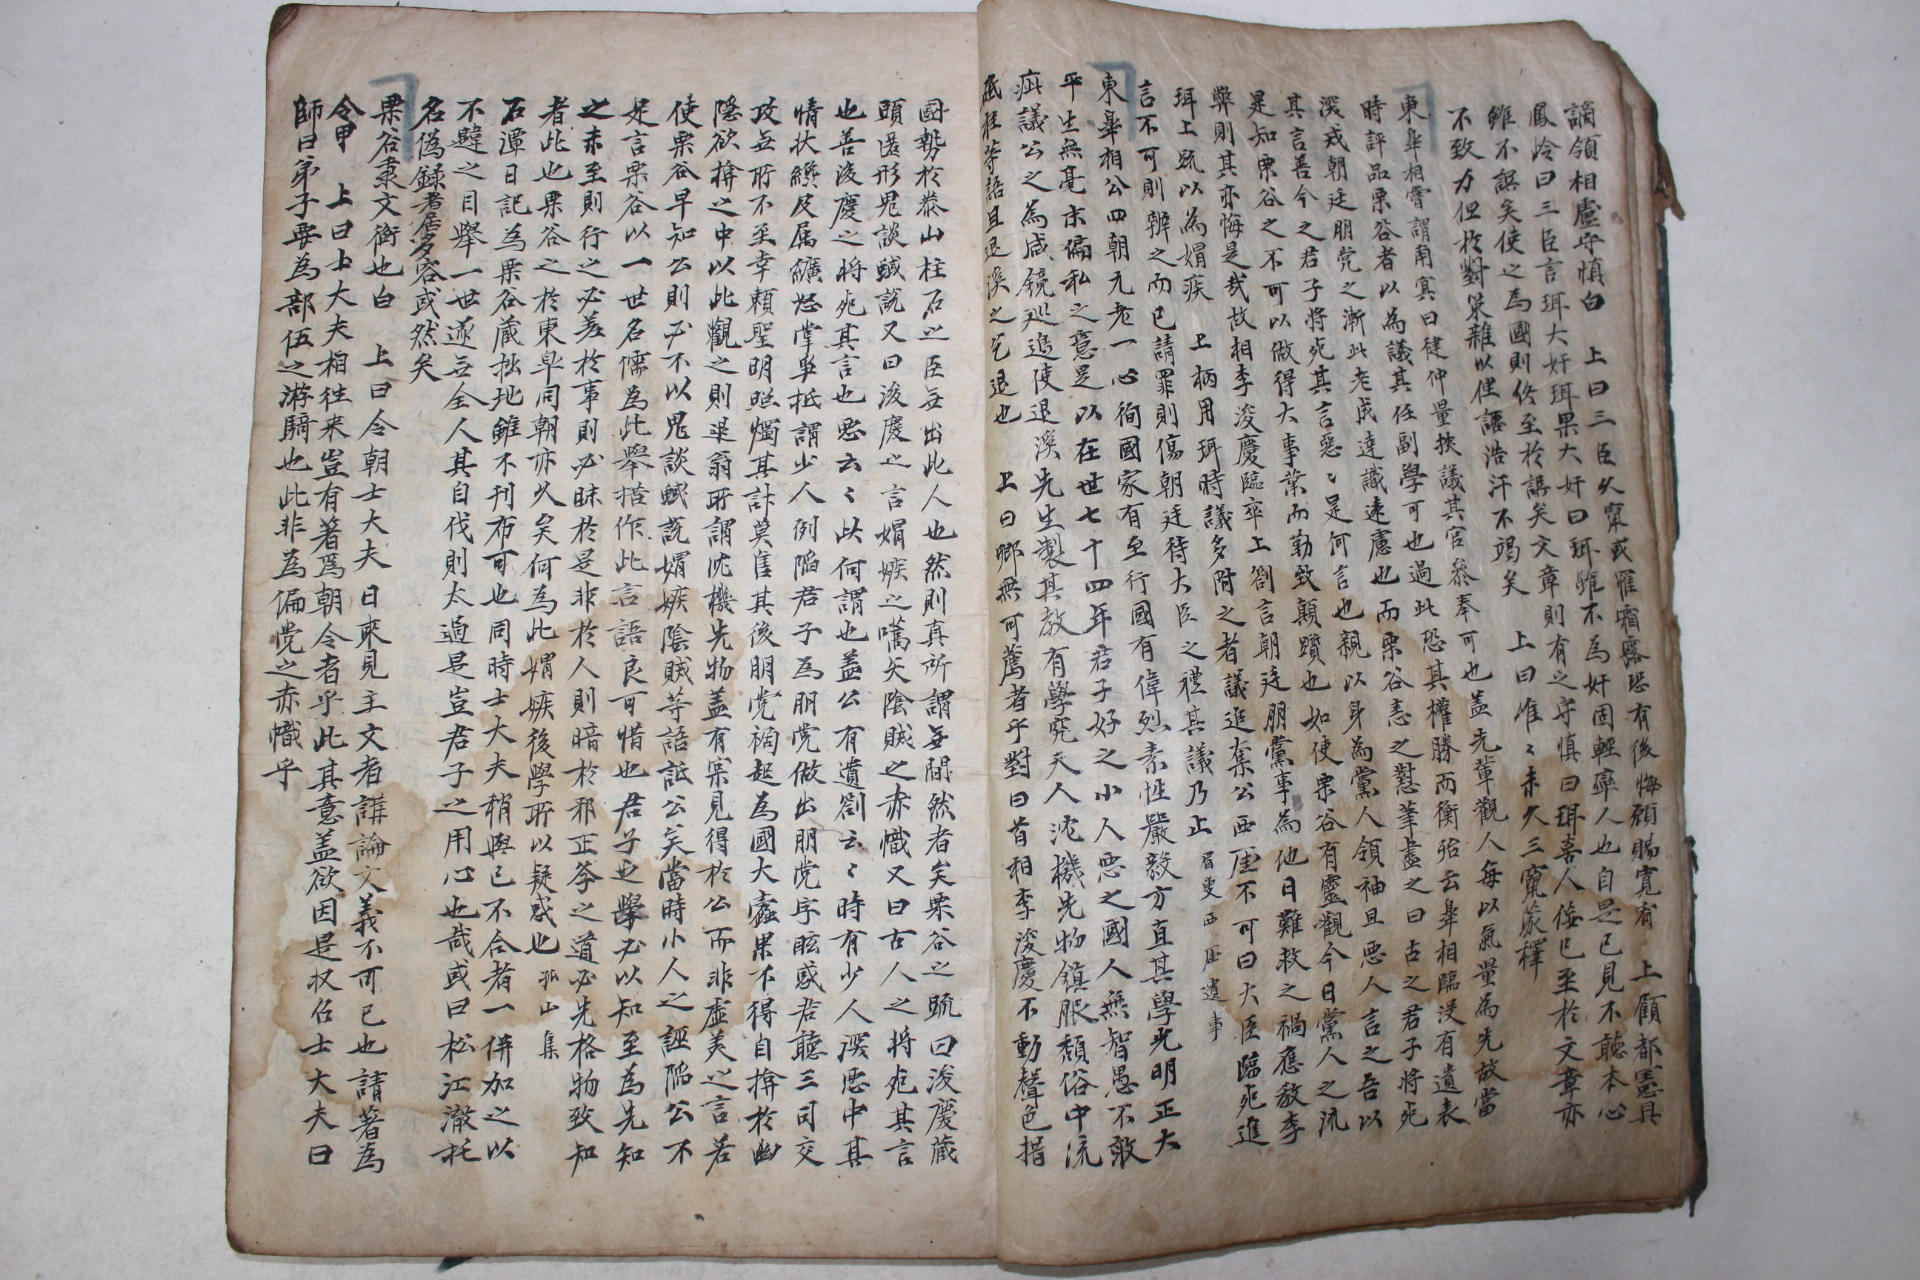 謫領相盧守愼白 上曰三臣久竄或罹霜露恐有後悔願賜寬宥 上顧都憲具
鳳岺曰三臣言珥大奸珥果大奸曰珥雖不爲奸固輕率人也自是已見不聽本心
雖不誤矣使之爲國則終至於誤矣文章則有之守愼曰珥喜人侫己至於文章亦
不致力但於對策雜以俚語浩汗不竭矣 上曰唯〻未久三竄蒙釋
東皐相嘗謂南冥曰健仲量挾議其官參奉可也盖先輩觀人每以氣量爲先故當
時評品栗谷者以爲議其任副學可也過此恐其權勝而衡弛云皐相臨沒有遺表
深戒朝廷朋党之漸此老成達識遠慮也而栗谷恚之懟筆盡之曰古之君子將死
其言善今之君子將死其言惡〻是何言也親以身爲黨人領袖且惡人言之吾以
是知栗谷之不可以做得大事業而勤致顚躓也如使栗谷有靈觀今日黨人之流
弊則其亦悔是哉故相李浚慶臨卒上劄言朝廷朋黨事爲他日難救之禍應敎李
珥上䟽以爲媢疾 上柄用珥時議多附之者議追奪公西厓不可曰大臣臨死進
言不可則辨之而已請罪則傷朝廷待大臣之禮其議乃止 眉叟西厓遺事
東皐相公四朝元老一心徇國家有至行國有偉烈素性嚴毅方直其學光明正大
平生無毫末偏私之意是以在世七十四年君子好之小人惡之國人無智愚不敢
疵議公之爲咸鏡巡追使退溪先生製其敎有學究天人沈機先物鎭服頹俗中流
砥柱等語且退溪之乞退也 上曰卿無可薦者乎對曰首相李浚慶不動聲色措
國勢於泰山柱石之臣無出此人也然則眞所謂無間然者矣栗谷之䟽曰浚慶藏
頭匿形鬼談蜮說又曰浚慶之言媢嫉之嚆矢陰賊之赤幟又曰古人之將死其言
也善浚慶之將死其言也惡云〻此何謂也盖公有遺劄云〻時有少人深惡中其
情狀纔及属纊怒掌爭抵謂少人例陷君子爲朋党做出朋党字眩惑君聽三司交
攻無所不至幸賴聖明照燭其計莫售其後朋党禍起爲國大蠹果不得自掩於幽
隱欲掩之中以此觀之則退翁所謂沈機先物盖有案見得於公而非虛美之言若
使栗谷早知公則必不以鬼談蜮說媢嫉陰賊等語詆公矣當時小人之誣陷公不
足言栗谷以一世名儒爲此擧措作此言語良可惜也君子之學必以知至爲先知
之未至則行之必差於事則必昧於是非於人則暗於邪正夅之道必先格物致知
者此也栗谷之於東皐同朝亦久矣何爲此媢嫉後學所以疑惑也 孤山集
石潭日記爲栗谷蔵拙地雖不刊布可也同時士大夫稍與己不合者一併加之以
不韙之目擧一世遂無全人其自伐則太過是豈君子之用心也哉或曰松江澈托
名僞錄者居多容或然矣
栗谷秉文衡也白 上曰今朝士大夫日來見主文者講論文義不可已也請著爲
令甲 上曰士大夫相往來豈有著爲朝令者乎此其意盖欲因是収召士大夫曰
師曰弟子要爲部伍之游騎也此非爲偏党之赤幟乎